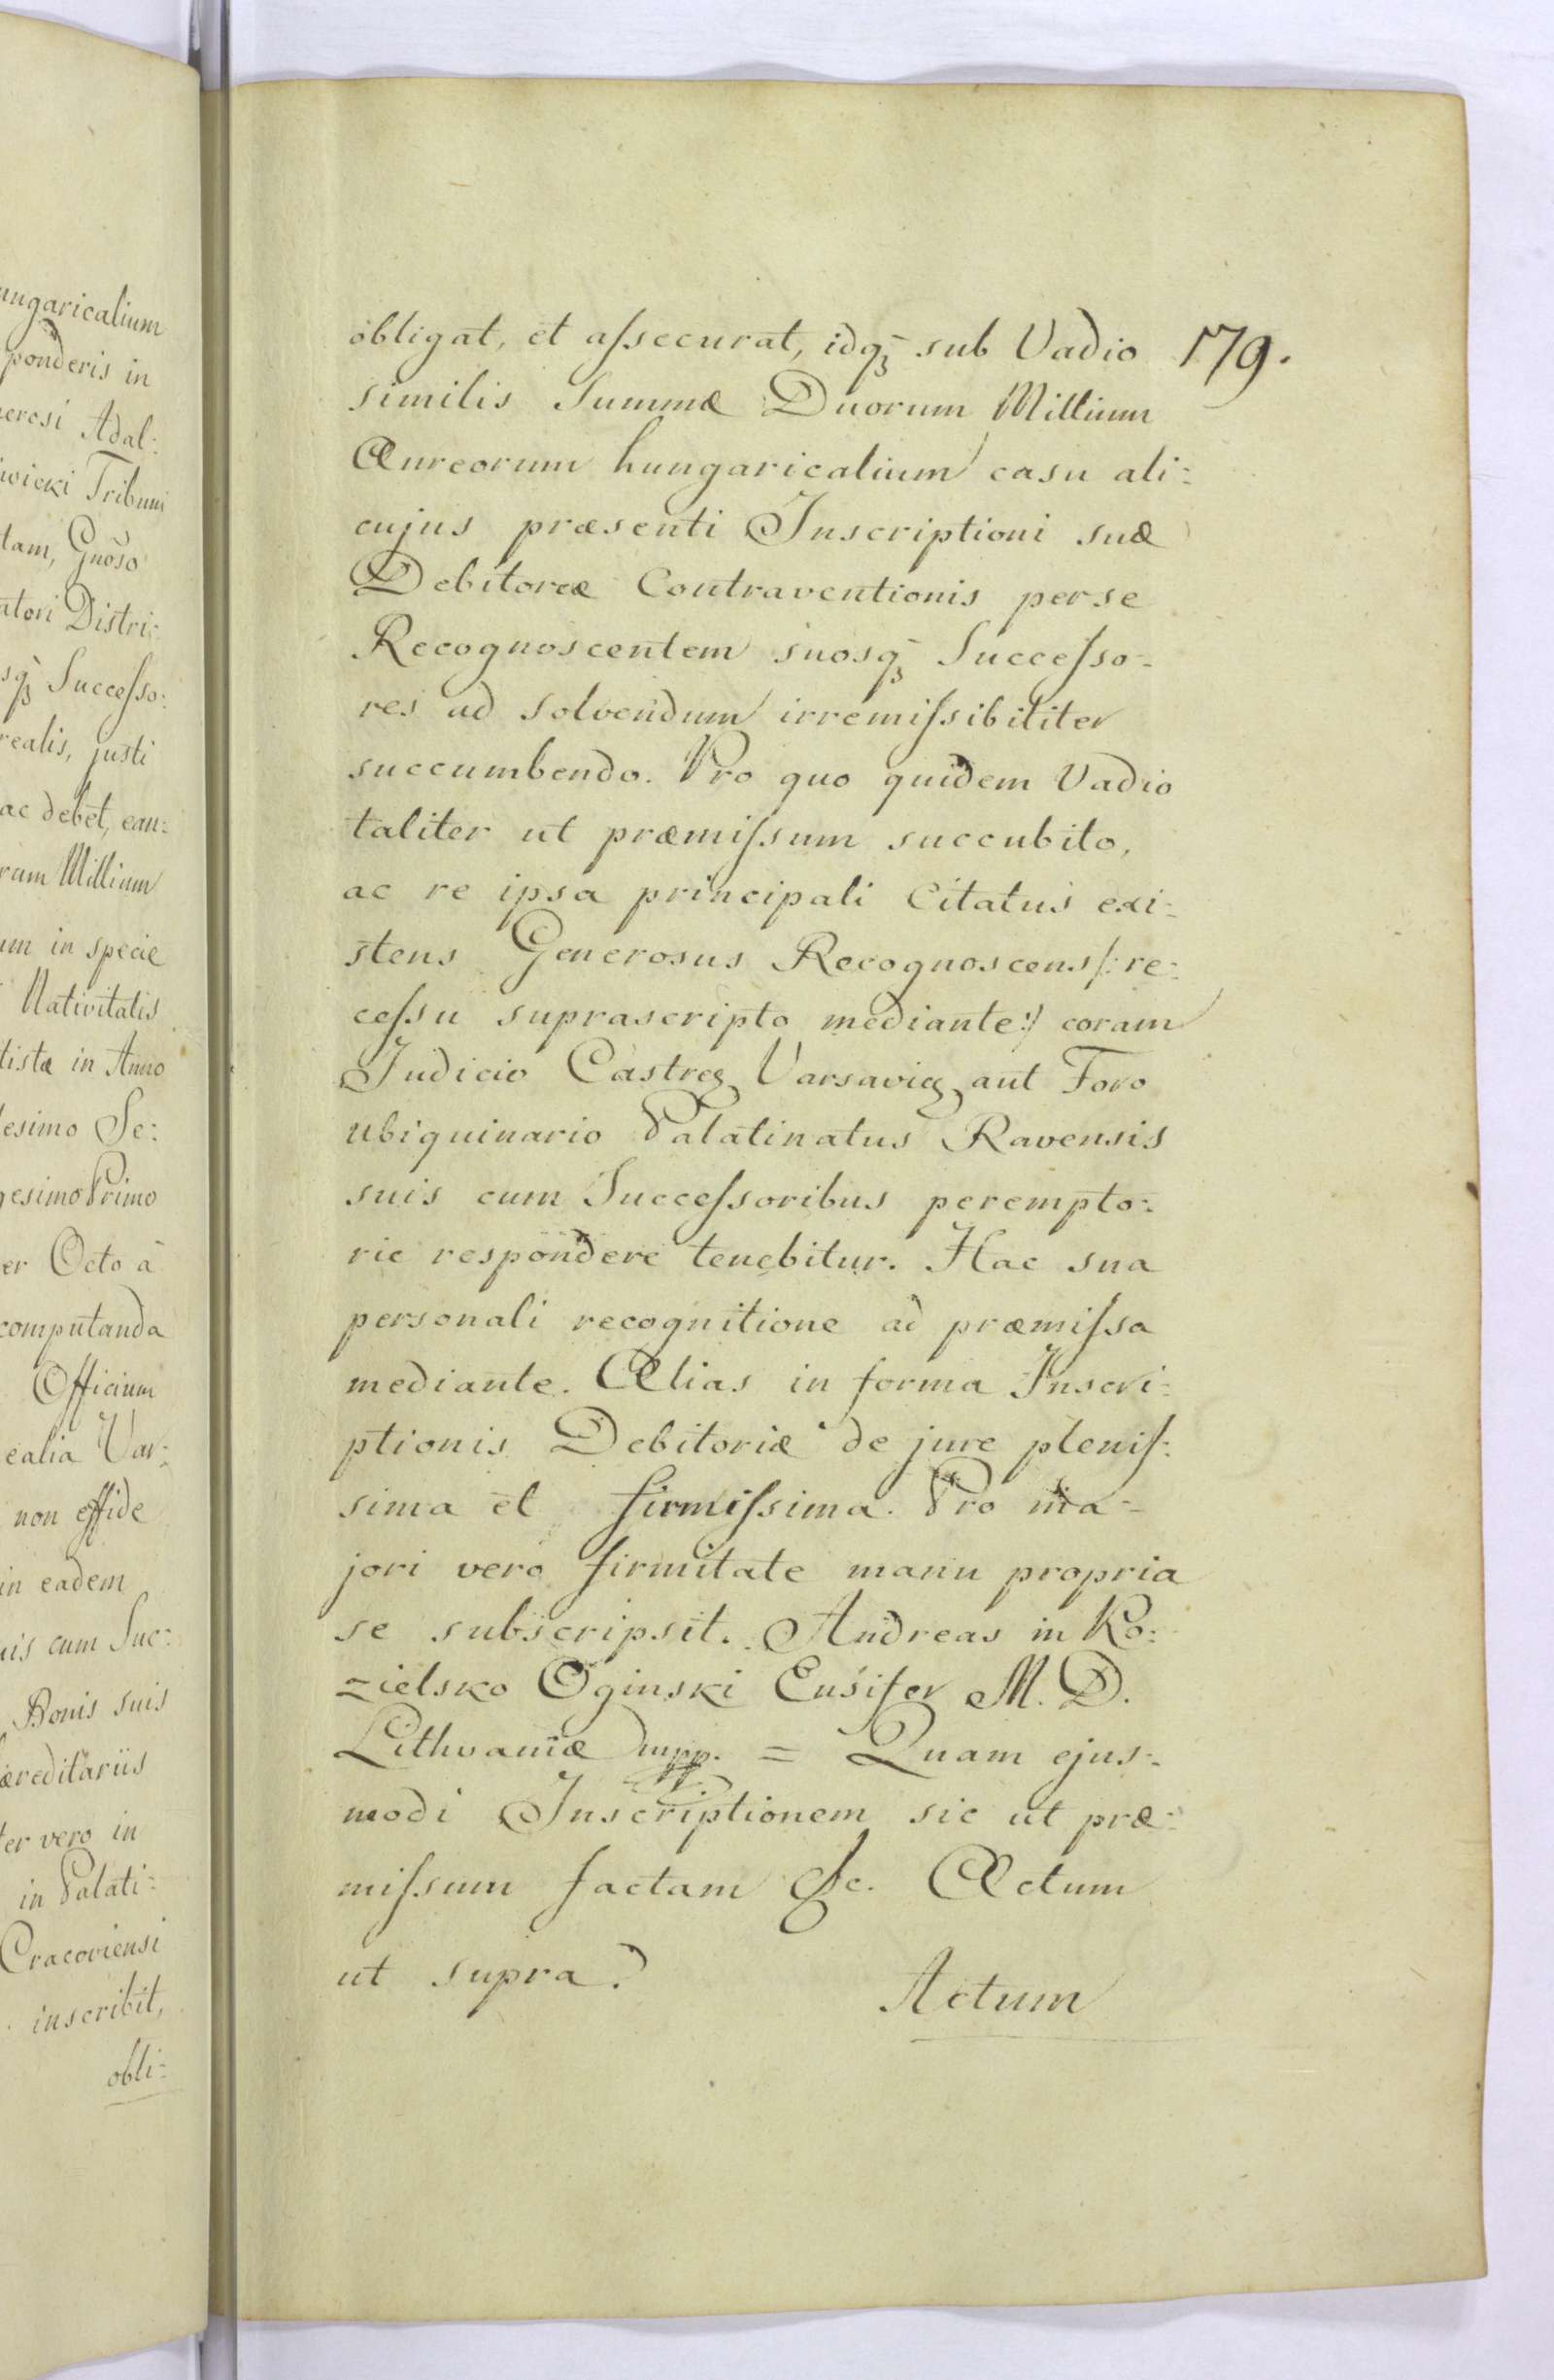 ungaricalium
ponderis in
nerosi Adal:
wicki Tribuni
tam, Gnoso
atori Distri:
sq̃ Succeſso:
realis, justi
ac debet, ean:
rum Millium
um in specie
Nativitatis
tistæ in Anno
lesimo Se:
gesimo Primo
er Octo à
computanda
Officium
ealia Var:
non effide
in eadem
uis cum Suc:
Bonis suis
æreditariis
ter vero in
in Palati:
Cracoviensi
inscribit,
obli:
179.
obligat, et aſsecurat, idq̃ sub Vadio
similis Summæ Duorum Millium
Aureorum hungaricalium casu ali:
cujus præsenti Inscriptioni suæ
Debitoreæ Contraventionis per se
Recognoscentem suosq̃ Succeſso-
res ad solvendum irremiſsibiliter
succumbendo. Pro quo quidem Vadio
taliter ut præmiſsum succubito,
ac re ipsa principali Citatus exi:
stens Generosus Recognoscens /: re:
ceſsu suprascripto mediante :/ coram
Judicio Castreę Varsavieę aut Foro
ubiquinario Palatinatus Ravensis
suis cum Succeſsoribus perempto:
rie respondere tenebitur. Hac sua
personali recognitione ad præmiſsa
mediante. Alias in forma Inscri:
ptionis Debitoriæ de jure pleniſ:
sima et firmiſsima. Pro ma-
jori vero firmitate manu propria
se subscripsit. Andreas in Ko:
zielsko Oginski Ensifer M. D.
Lithvaniæ mpp. = Quam ejus:
modi Inscriptionem sic ut præ:
miſsum factam &c. Actum
ut supra.
Actum